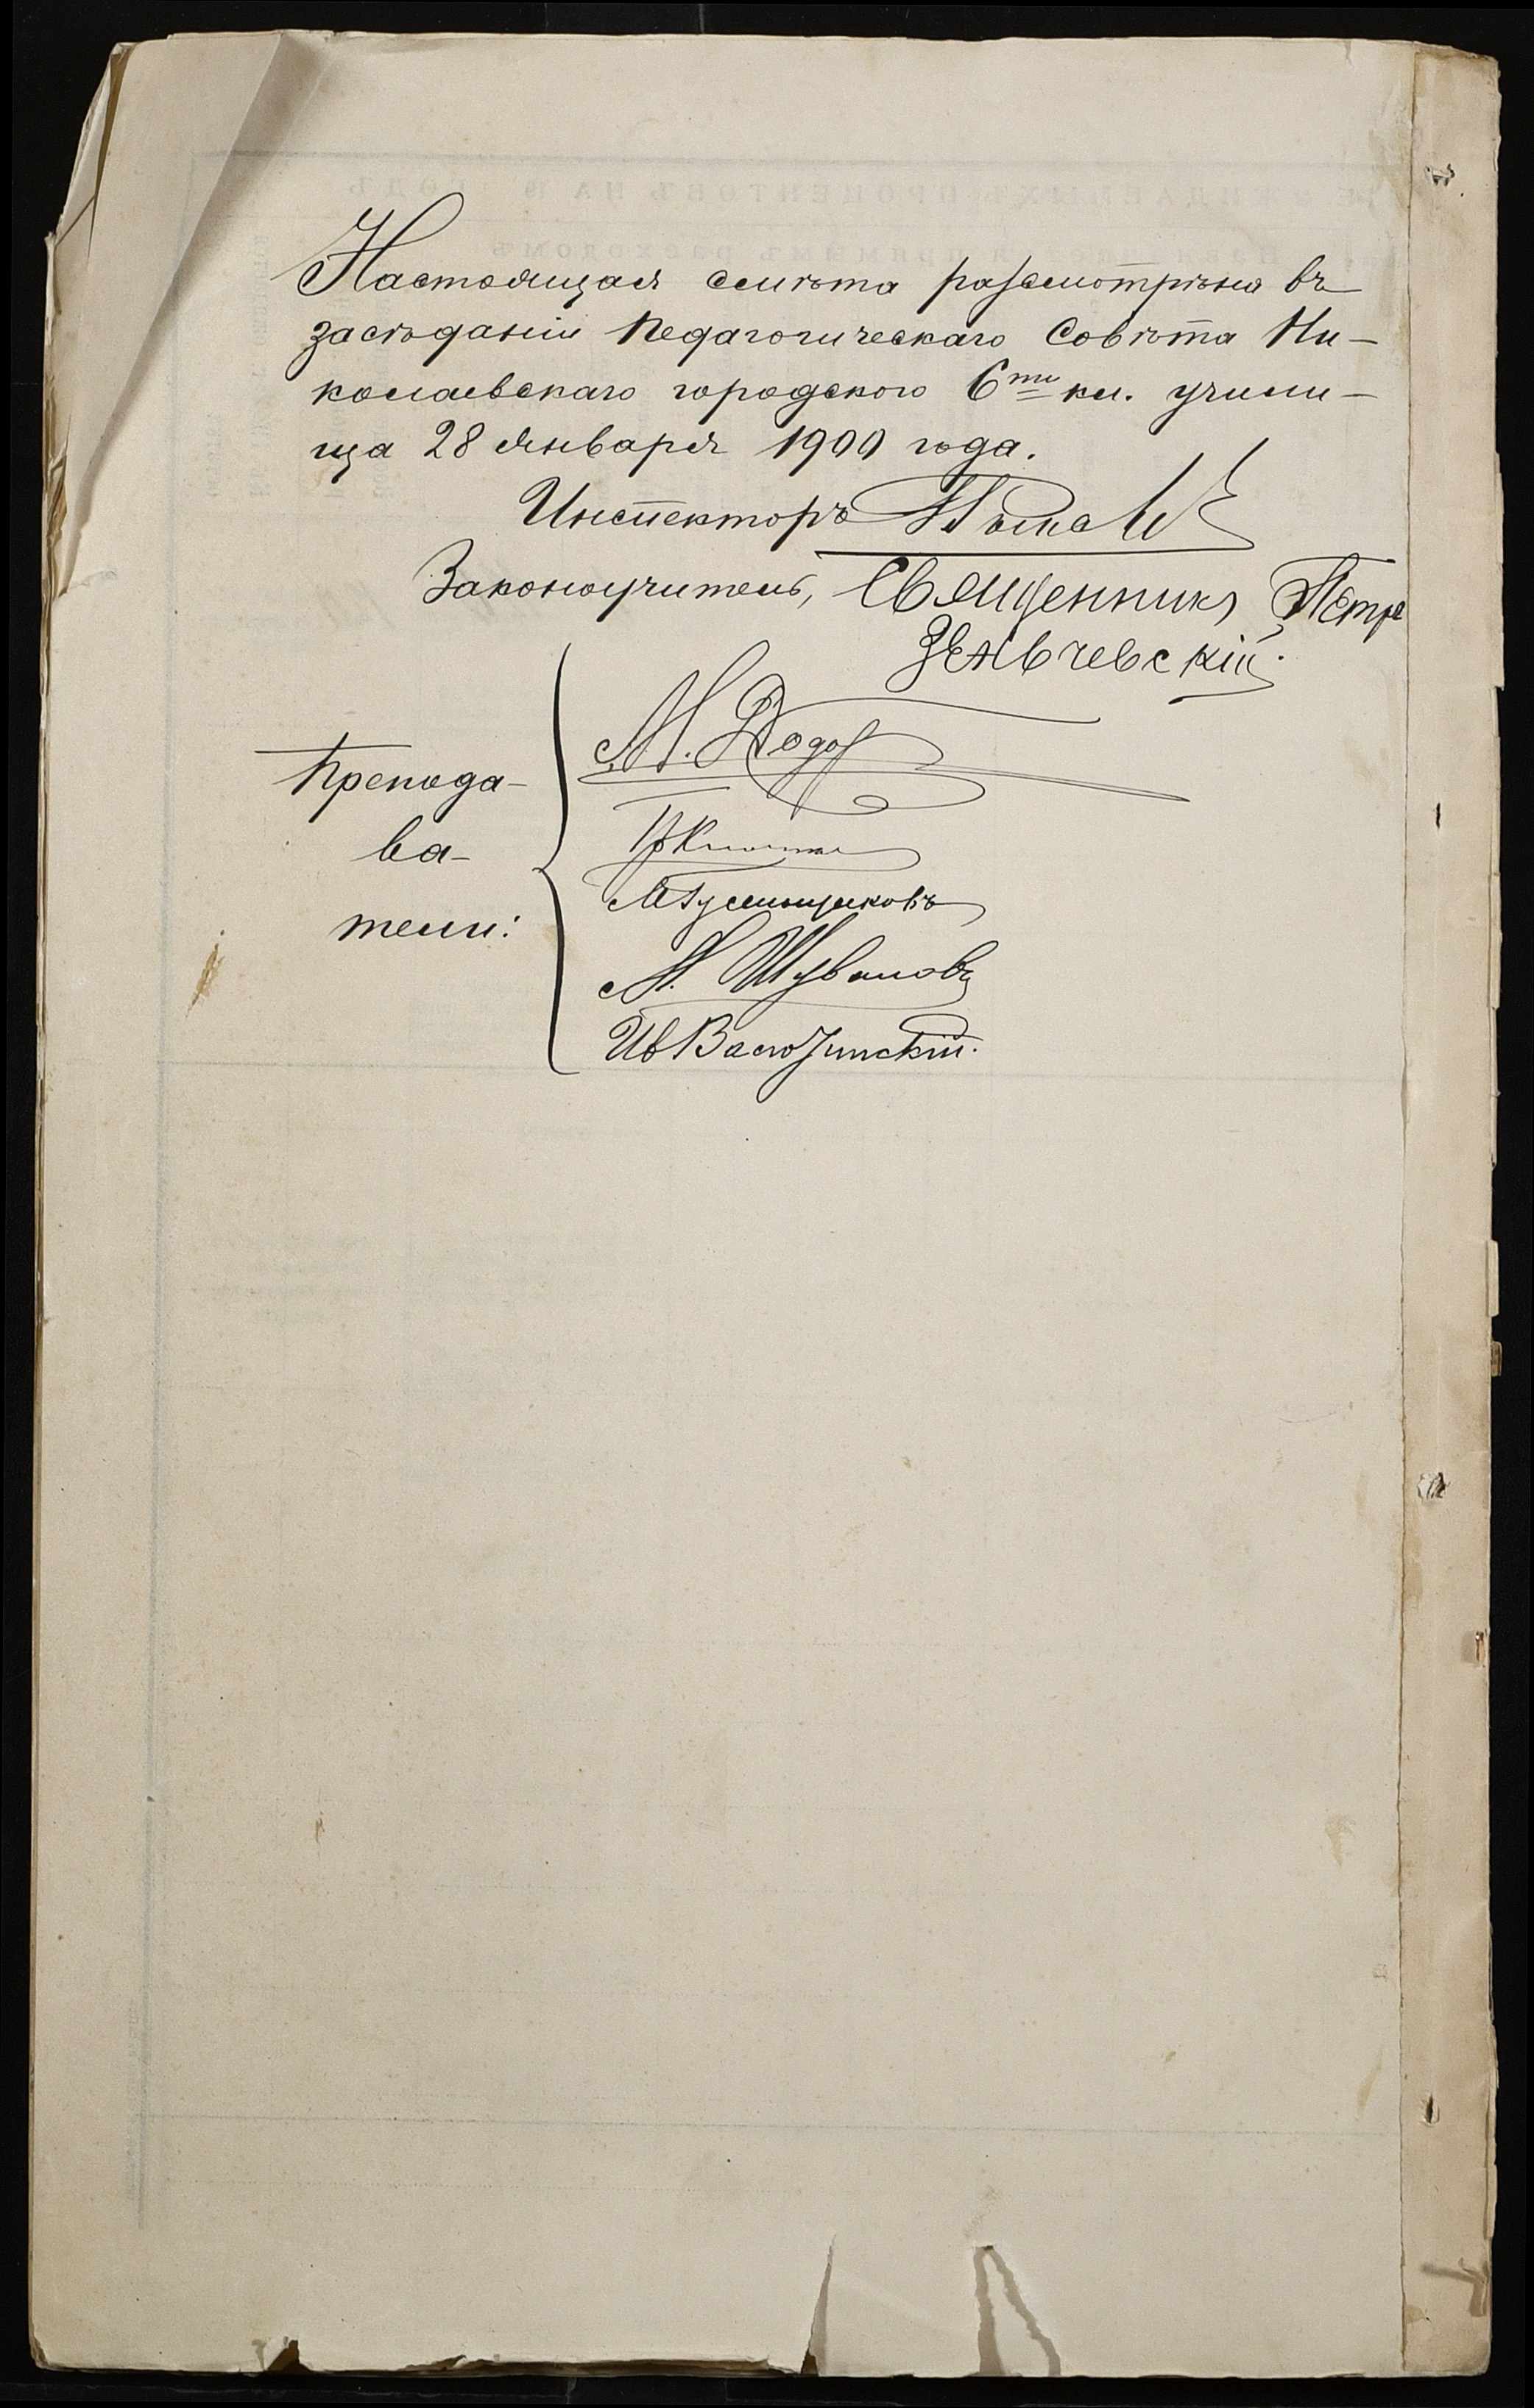 Настоящая смѣта разсмотрѣна въ
засѣданіи Педагогическаго Совѣта Ни-
колаевскаго городского 6ти кл. учили-
ща 28 января 1900 года.
Инспекторъ
Законоучитель, Священникъ Петръ
Зеньчевскій.
М. Додо
Препода-
ва-
тели:
М. Шуваловъ
Ив